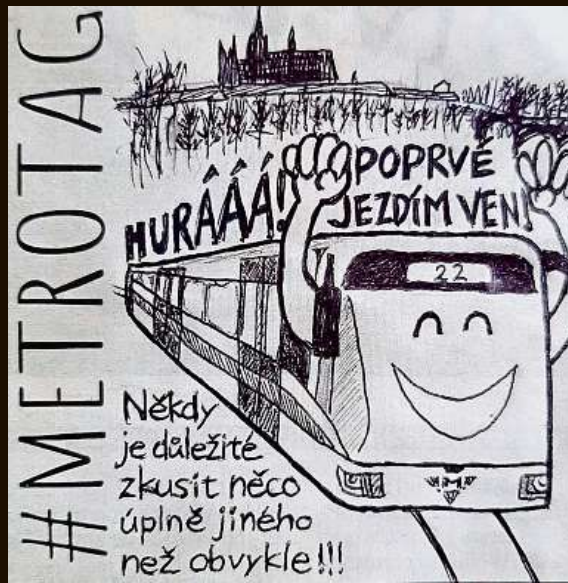 #METROTAG
HURÁÁÁ!
POPRVÉ
JEZDÍM VEN!
22
M
Někdy
je důležité
zkusit něco
úplně jiného
než obvykle!!!